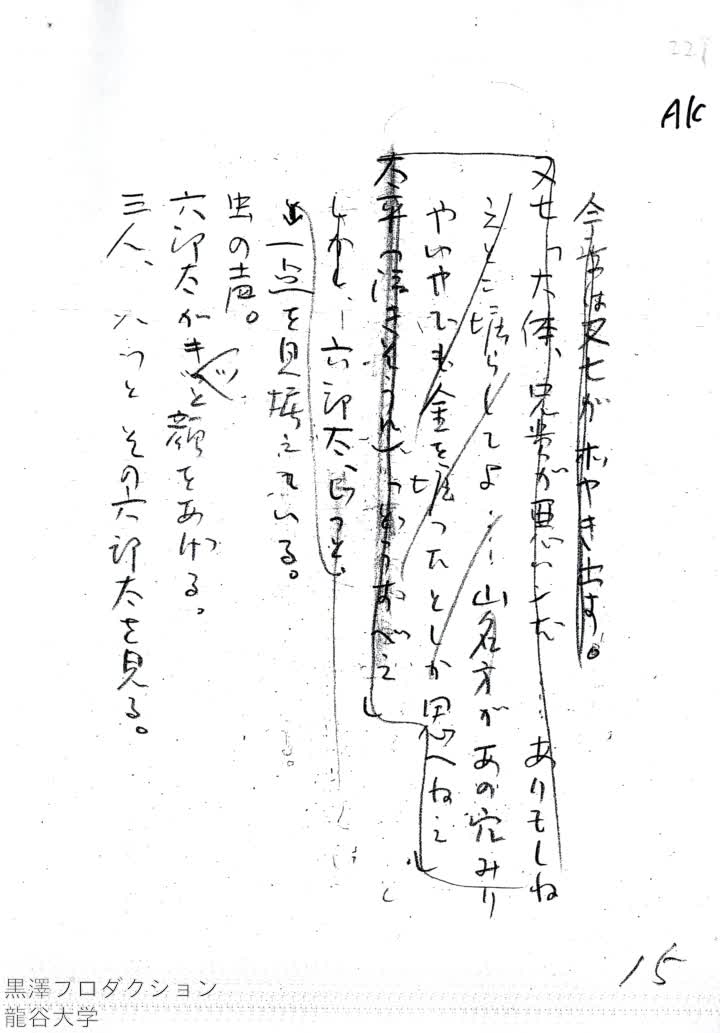 221
AK
今度は又七がボヤき出す。
又七「大体、兄貴が悪いンだ……ありもしね
えとこ堀らしてよ……山名方があの穴みり
やいやでも金を堀ったとしか思へねえ」
太平（泣きそうに）「どうすべえ」
しかし、六郎太、じっと、
一点を見据えている。
虫の声。
六郎太がキッと顔をあげる。
三人、ハッとその六郎太を見る。
15
黒澤プロダクション
龍谷大学